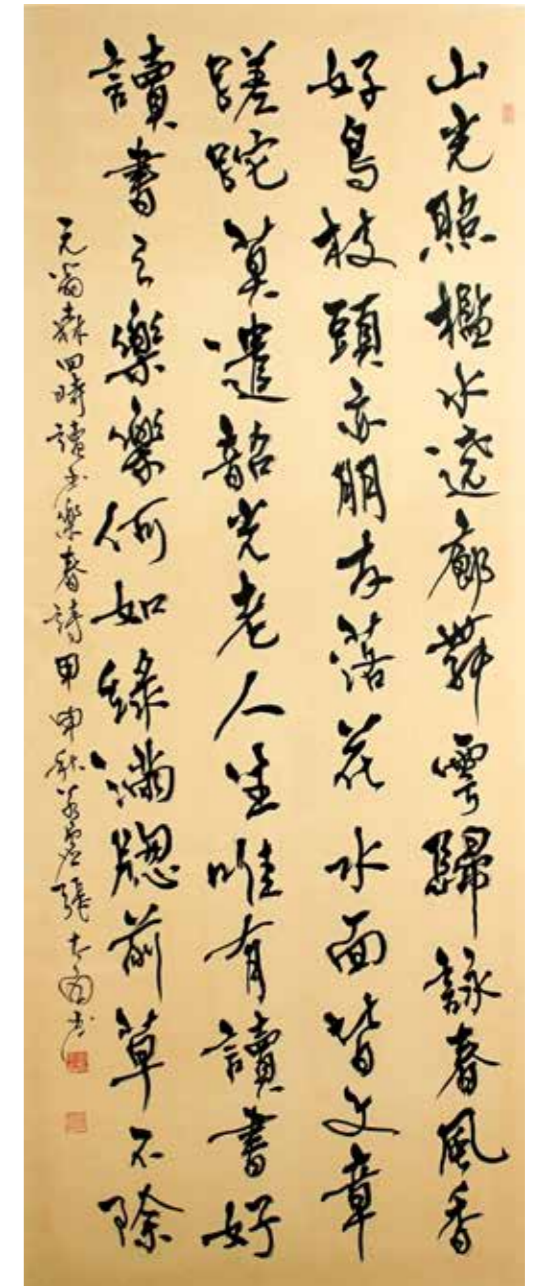 山光照檻水遶廊舞雩歸詠春風香
好鳥枝頭亦朋友落花水面皆文章
蹉跎莫遣韶光老人生唯有讀書好
讀書之樂樂何如綠滿窻前草不除
元翁森四時讀書樂春詩甲申秋若虛張大書